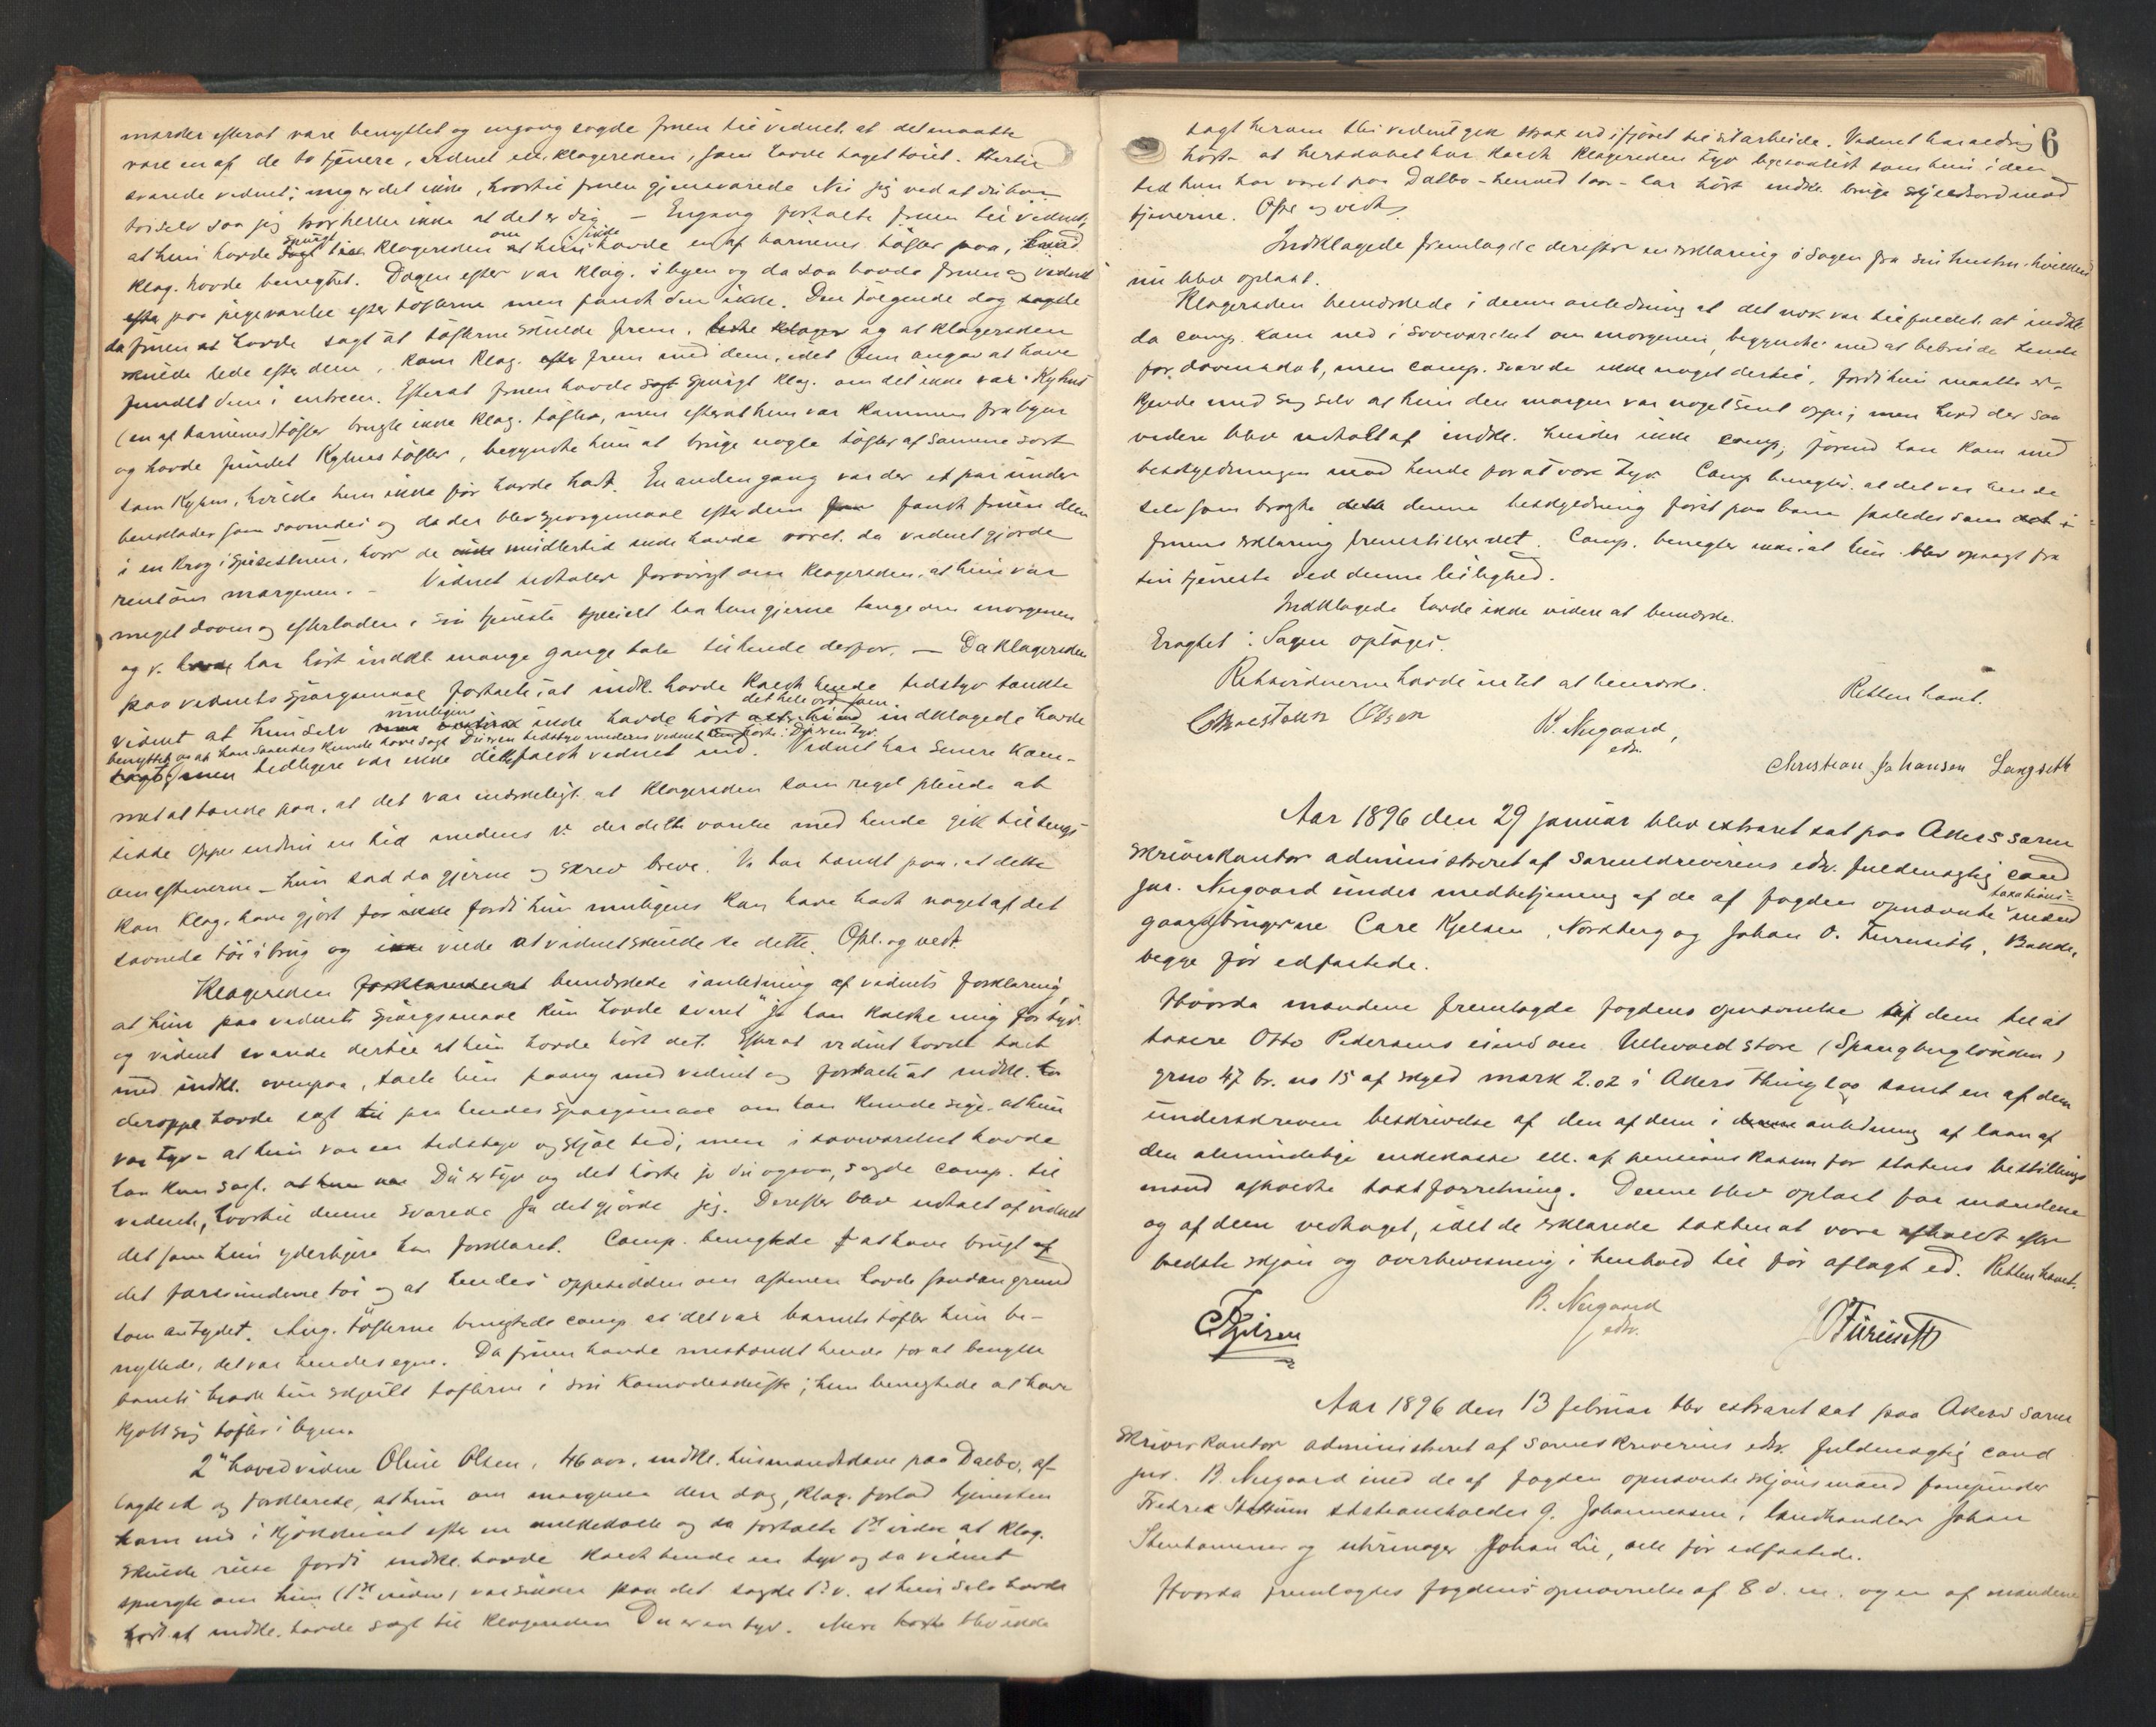 mærker efterat være benyttet og engang sagde fruen til vidnet, at det maatte
være en af de to tjenere, vidnet ell. klagersken, som havde taget tøiet. Hertil
svarede vidnet: mig er det ikke, hvortil fruen gjensvarede Nei jeg ved at du har
tøi selv saa jeg tror heller ikke at det er dig. – Engang fortalte fruen til vidnet,
at hun havde spurgt klagersken om hun ikke havde en af børnenes tøfler paa, hvad
klag. havde benegtet. Dagen efter var klag. i byen og da saa havde fruen og vidnet
paa pigeværelse efter tøflerne men fandt dem ikke. Den følgende dag
da fruen havde sagt at tøflerne skulde frem, og at klagersken
skulde lede efter dem, kom klag. frem med dem, idet hun angav at have
fundet dem i entreen. Efterat fruen havde spurgt klag. om det ikke var Kyhns
(en af børnenes) tøfler brugte ikke klag. tøfler, men efterat hun var kommen fra byen
og havde fundet Kyhns tøfler, begyndte hun at bruge nogle tøfler af samme sort
som Kyhns, hvilke hun ikke før havde havt. En anden gang var der et par under
benklæder som savnedes og da der blev spørgsmaal efter dem fandt fruen dem
i en krog i spisestuen, hvor de imidlertid ikke havde været, da vidnet gjorde
rent om morgenen. – Vidnet udtaler forøvrigt om klagersken, at hun var
meget doven og efterladen i sin tjeneste specielt laa hun gjerne længe om morgenen
og v. har hørt indkl. mange gange tale til hende derfor. – Da klagersken
paa vidnets spørgsmaal fortalte, at indk. havde kaldt hende tidstyv tænkte
vidnet at hun selv muligens ikke havde hørt det hele ord som indklagede havde
benyttet og at han saaledes kunde have sagt Du er en tidstyv medens vidnet hørte: Du er en tyv.
men tidligere var ikke dette faldt vidnet ind. Vidnet har senere kom-
met at tænke paa, at det var mærkeligt at klagersken som regel pleiede at
sidde oppe endnu en tid medens v. der delte værelse med hende gik tilsengs
om aftenerne – hun sad da gjerne og skrev breve. V. har tænkt paa, at dette
kan klag. have gjort fordi hun muligens kan have havt noget af det
savnede tøi i brug og ikke vilde at vidnet skulde se dette. Opl. og vedt.
Klagersken bemærkede i anledning af vidnets forklaring,
at hun paa vidnets spørgsmaal kun havde svaret "ja han kaldte mig for tyv"
og vidnet svarede dertil at hun havde hørt det. Efterat vidnet havde talt
med indkl. ovenpaa, talte hun paany med vidnet og fortalte at indkl.
deroppe havde sagt paa hendes spørgsmaal om han kunde sige, at hun
var tyv – at hun var en tidstyv og stjal tid; men i soveværelset havde
han kun sagt. Du er tyv og det hørte jo du ogsaa, sagde comp. til
vidnet, hvortil denne svarede Ja det gjorde jeg. Derefter blev udtalt af vidnet
det som hun yderligere har forklaret. Comp. benegtede at have brugt af
det forsvundene tøi og at hendes oppesidden om aftenen havde saadan grund
som antydet. Ang. tøflerne benegtede comp. at det var barnets tøfler hun be-
nyttede, det var hendes egne. Da fruen havde mistænkt hende for at benytte
barnets havde hun skjult tøflerne i sin komodeskuffe; hun benegtede at have
kjøbt sig tøfler i byen.
2det hovedvidne Oline Olsen, 46 aar, indkl. husmandskone paa Dælbo, af-
lagde ed og forklarede, at hun om morgenen den dag, klag. forlod tjenesten
kom ind i kjøkkenet efter en melkekolle og da fortalte 1ste vidne at klag.
skulde reise fordi indkl. havde kaldt hende en tyv og da vidnet
spurgte om hun (1ste vidne) var sikker paa det sagde 1ste v. at hun selv havde
hørt at indkl. havde sagt til klagersken Du er en tyv. Mere blev ikke
6
sagt herom thi vidnet gik strax ud i fjøset til sit arbeide. Vidnet har aldrig
hørt at herskabet har kaldt klagersken tyv ligesaalidt som hun i den
tid hun har været paa Dælbo – henved 1 aar – har hørt indkl. bruge skjeldsord mod
tjenerne. Opl. og vedt.
Indklagede fremlagde derefter en erklæring i sagen fra sin hustru hvilken
nu blev oplæst.
Klagersken bemærkede i denne anledning at det nok var tilfældet at indkl.
da comp. kom ned i soveværelset om morgenen, begyndte med at bebreide hende
for dovenskab, men comp. svarede ikke noget dertil, fordi hun maatte er-
kjende med sig selv at hun den morgen var noget sent oppe; men hvad der saa
videre blev udtalt af indkl. husker ikke comp, førend han kom med
beskyldningen mod hende for at være tyv. Comp benegter, at det var hende
selv som bragte denne beskyldning først paa bane saaledes som i
fruens erklæring fremstillet. Comp. benegter ikke, at hun blev opsagt fra
sin tjeneste ved denne leilighed.
Indklagede havde ikke videre at bemærke.
Eragtet: Sagen optages.
Retsvidnerne havde intet at bemærke.
Retten hævet.
Christian Olsen
B. Neegaard,
edsv.
Christian Johansen Langseth
Aar 1896 den 29 januar blev extraret sat paa Akers soren
skriverkontor administreret af sorenskriverens edsv. fuldmægtig cand
jur. Neegaard under medbetjening af de af fogden opnævnte taxations-mænd
gaardbrugerne Carl Kjelsen, Nordberg og Johan O. Furuseth, Bakke,
begge før edfæstede.
Hvorda mændene fremlagde fogdens opnævnelse af dem til at
taxere Otto Pedersens eiendom Ullevold store (Spangbergløkken)
grno 47 br. no 15 af skyld mark 2.02 i Akers thinglag samt en af dem
underskreven beskrivelse af den af dem i anledning af laan af
den almindelige enkekasse ell. af pensionskassen for statens bestillings
mænd afholdte taxtforretning. Denne blev oplæst for mændene
og af dem vedtaget, idet de erklærede taxten at være afholdt efter
bedste skjøn og overbevisning i henhold til før aflagt ed. Retten hævet.
CKjelsen
B. Neegaard
edsv.
JOFuruseth
Aar 1896 den 13 februar blev extraret sat paa Akers soren
skriverkontor administreret af sorenskriverens edsv. fuldmægtig cand
jur. B. Neegaard med de af fogden opnævnte skjønsmænd
Fredrik Stottum G. Johannessen, landhandler Johan
Stenhammer og uhrmager Johan Lie, alle før edfæstede.
Hvorda fremlagdes fogdens opnævnelse af 8 d. m. og en af mændene